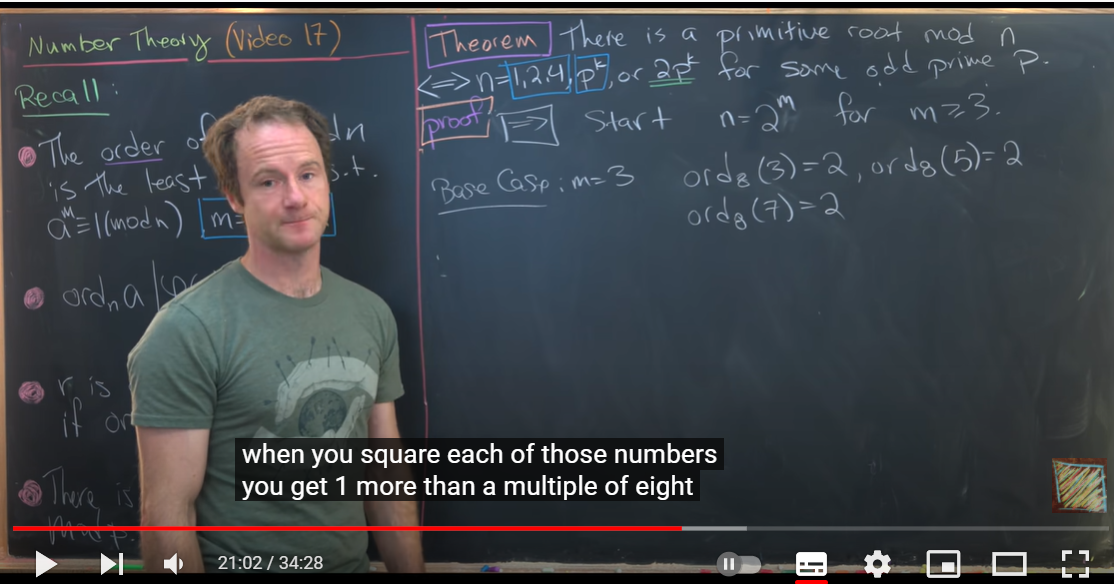 Number Theory (Video 17)
Recall:
The order of dn
is the least s.t.
a^m≡1(mod n) m=
ord_n a |
r is
if or
There is
mod p.
Theorem There is a primitive root mod n
<=> n=1,2,4, p^k, or 2p^k for some odd prime p.
proof => Start n=2^m for m≥3.
Base Case: m=3 ord_8(3)=2, ord_8(5)=2
ord_8(7)=2
when you square each of those numbers
you get 1 more than a multiple of eight
21:02 / 34:28